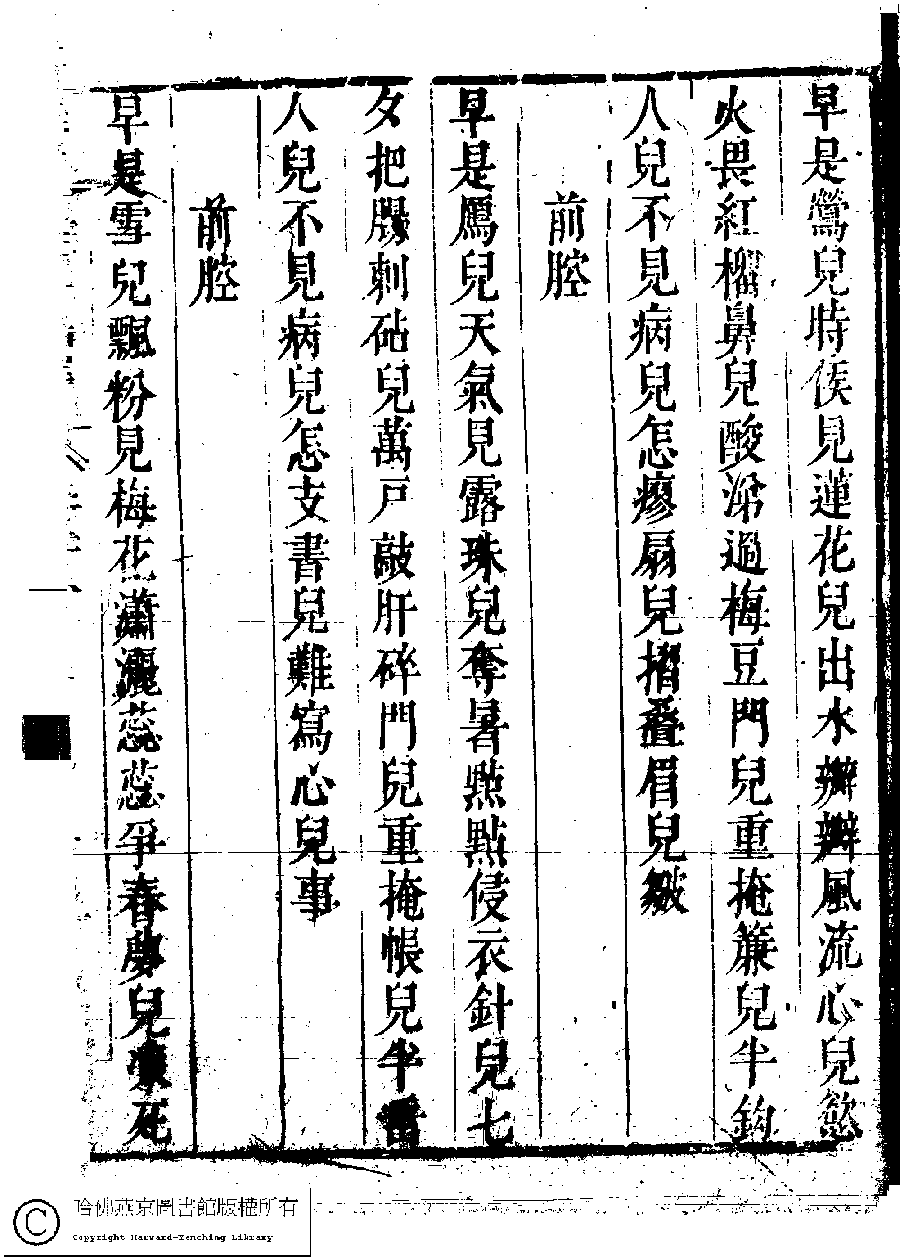 早是鶯兒時候見蓮花兒出水瓣瓣風流心兒慾
火畏紅榴鼻兒酸㴑過梅豆門兒重掩簾兒半鈎
人兒不見病兒怎瘳扇兒摺叠眉兒皺
前腔
早是鴈兒天氣見露珠兒奪暑㸃點侵衣針兒七
夕把腸刺砧兒萬戸敲肝碎門兒重掩帳兒半
人兒不見病兒怎支書兒難寫心兒事
前腔
早是雪兒飄粉見梅花瀟灑蕊蕊爭春夢兒死
哈佛燕京圖書館版權所有
Copyright Harvard-Yenching Library